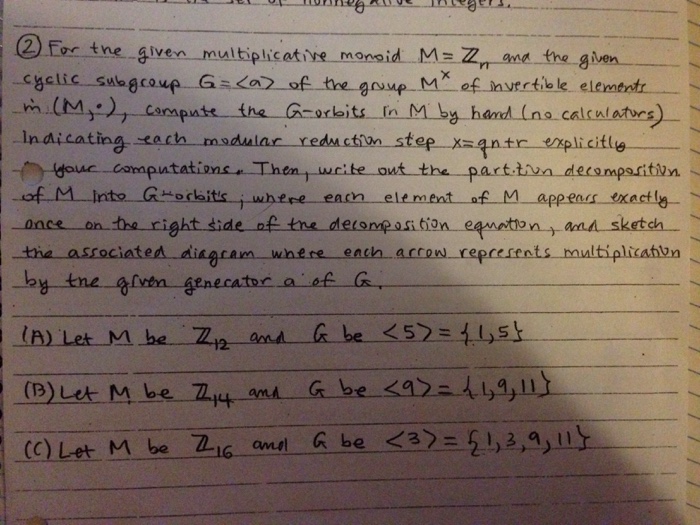 the set of nonnegative integers.
② For the given multiplicative monoid M = ℤₙ and the given
cyclic subgroup G = <a> of the group Mˣ of invertible elements
in (M,·), compute the G-orbits in M by hand (no calculators)
Indicating each modular reduction step x=qn+r explicitly
your computations. Then, write out the partition decomposition
of M into G-orbits, where each element of M appears exactly
once on the right side of the decomposition equation, and sketch
the associated diagram where each arrow represents multiplication
by the given generator a of G.
(A) Let M be ℤ₁₂ and G be <5> = {1,5}
(B) Let M be ℤ₁₄ and G be <9> = {1,9,11}
(C) Let M be ℤ₁₆ and G be <3> = {1,3,9,11}